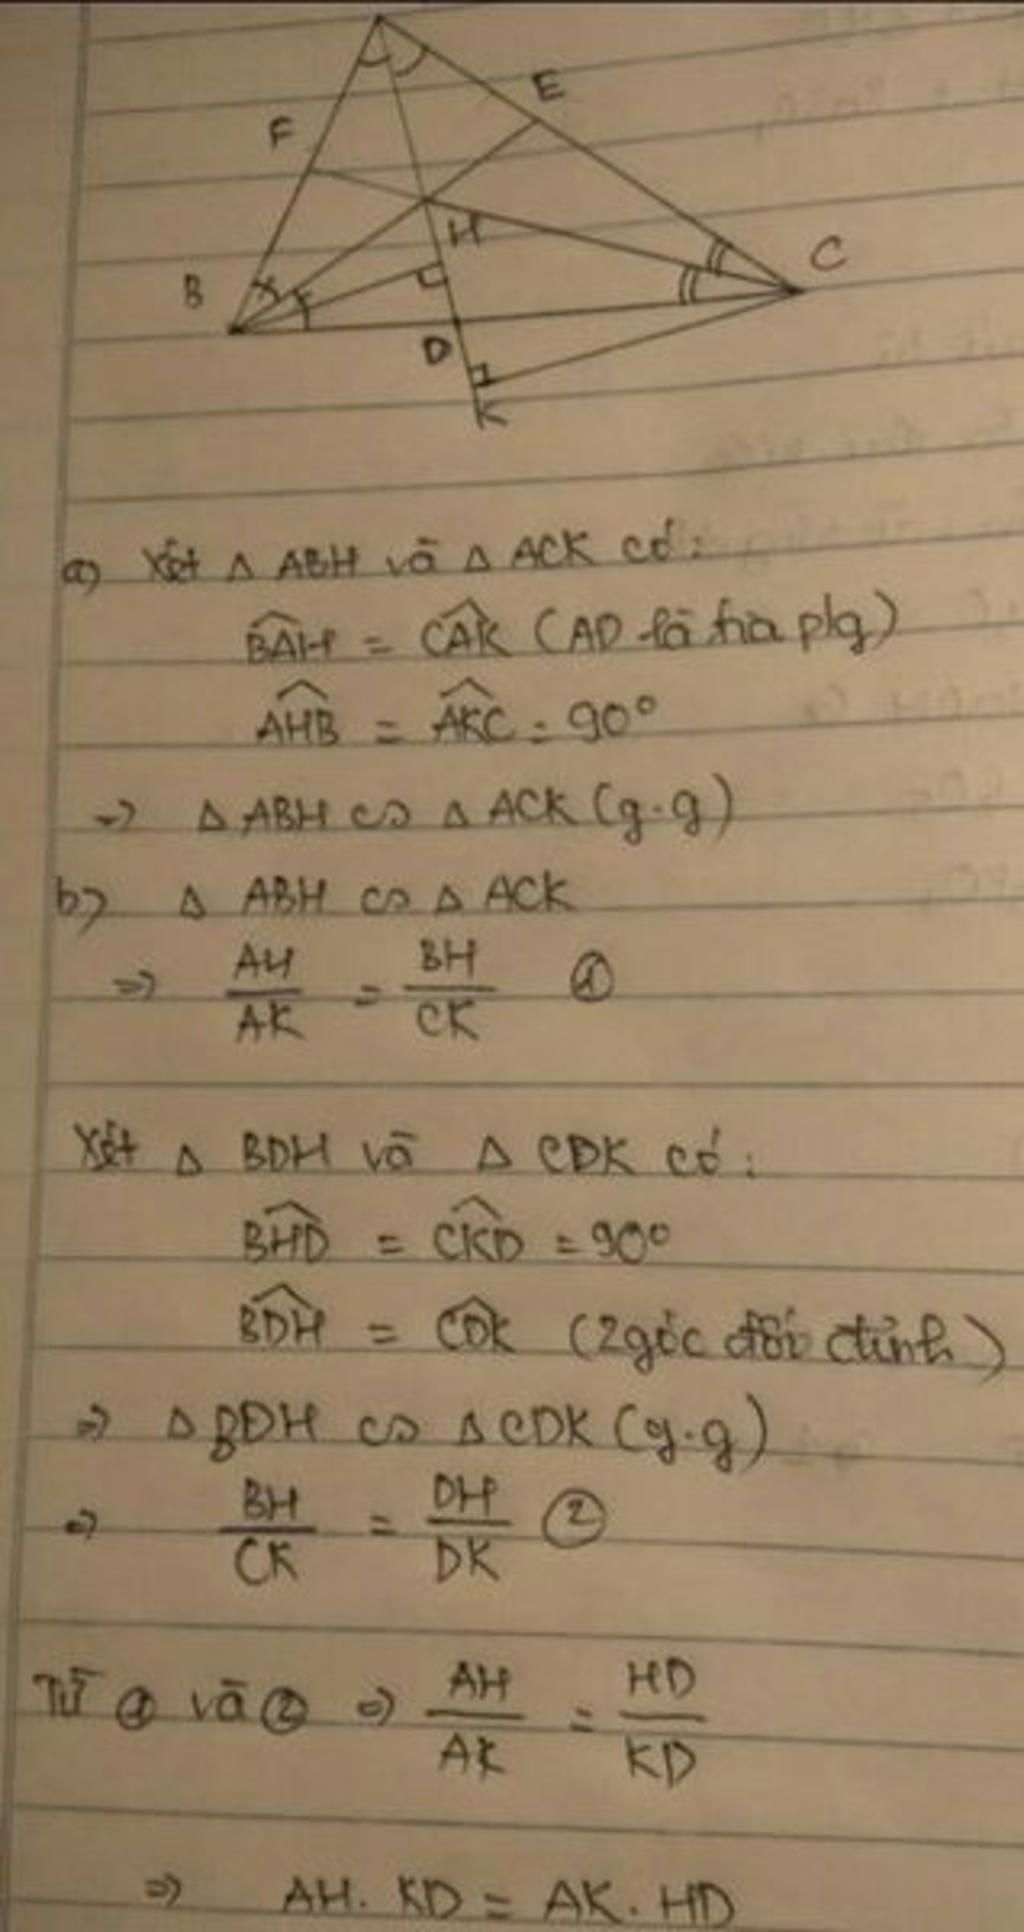 E
F
H
B
C
D
K
a) Xét Δ ABH và Δ ACK có:
BAH = CAK (AD là tia p/g)
AHB = AKC = 90°
=> Δ ABH ∽ Δ ACK (g.g)
b) Δ ABH ∽ Δ ACK
=> AH/AK = BH/CK ①
Xét Δ BDH và Δ CDK có:
BHD = CKD = 90°
BDH = CDK (2 góc đối đỉnh)
=> Δ BDH ∽ Δ CDK (g.g)
=> BH/CK = DH/DK ②
Từ ① và ② => AH/AK = HD/KD
=> AH. KD = AK. HD